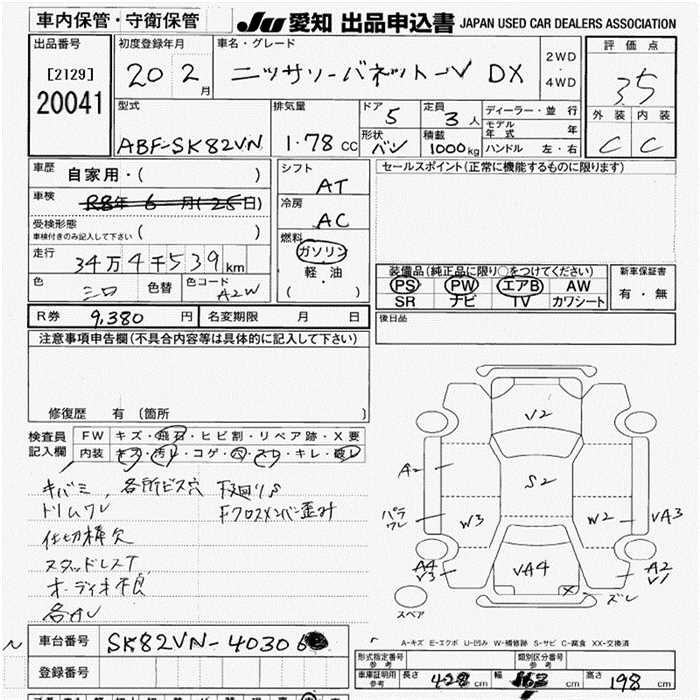 車内保管・守衛保管
JU 愛知 出品申込書 JAPAN USED CAR DEALERS ASSOCIATION
出品番号
[2129]
20041
初度登録年月
20 2月
車名・グレード
ニッサン バネットV DX
2WD
・
4WD
評価点
3.5
外装 内装
C C
型式
ABF-SK82VN
排気量
1.78 cc
ドア 5
定員 3人
形状 バン
積載 1000kg
ディーラー・並行
モデル年式 年
ハンドル 左・右
車歴 自家用・( )
車検 R8年 6月(25日)
受検形態
車検付きのみ記入して下さい ( )
走行 34万4千539km
色 シロ 色替 色コード A2W
シフト AT
冷房 AC
燃料
ガソリン
軽・油
( )
セールスポイント(正常に機能するものに限ります)
装備品(純正品に限り○をつけてください)
PS PW エアB AW
SR ナビ TV カワシート
新車保証書
有・無
R券 9,380円 名変期限 月 日
後日品
注意事項申告欄(不具合内容等は具体的に記入して下さい)
修復歴 有(箇所 )
検査員記入欄
FW キズ・飛石・ヒビ割・リペア跡・X要
内装 キズ・汚レ・コゲ・穴・スリ・キレ・破レ
キバミ、各所ビス穴 下廻りS
ドリムワレ Fクロスメンバン歪み
仕切棒欠
スタッドレスT
オーディオ不良
V2
A2
S2
パラワレ
W3
W2
VA3
A4
V3
VA4
X
A2
V1
ズレ
スペア
A-キズ E-エクボ U-凹み W-補修跡 S-サビ C-腐食 XX-交換済
車台番号 SK82VN-40306
登録番号
形式指定番号 参考
類別区分番号 参考
車庫証明用 参考
長さ 428 cm 幅 163 cm 高さ 198 cm